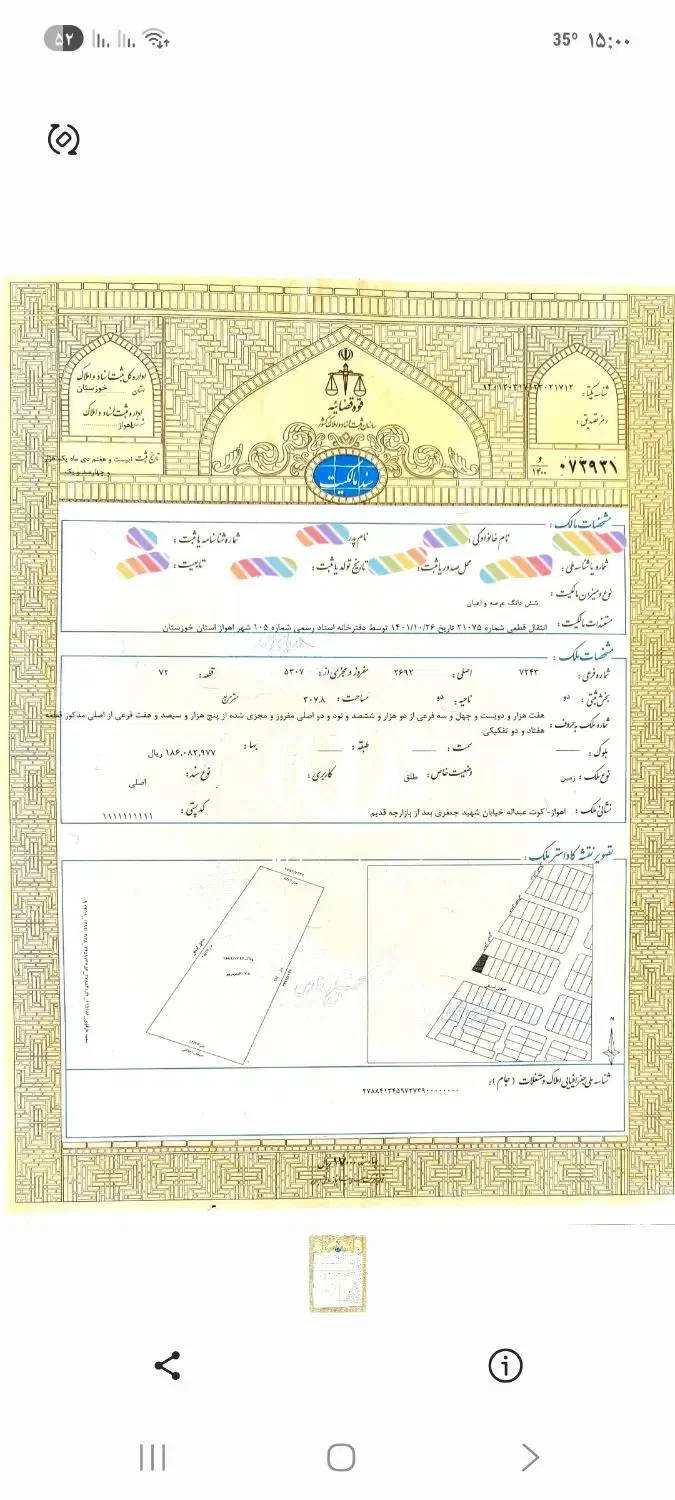 ۵۲
35° ۱۵:۰۰
اداره کل ثبت اسناد و املاک
استان خوزستان
اداره ثبت اسناد و املاک
اهواز
قوه قضائیه
سازمان ثبت اسناد و املاک کشور
سند مالکیت
شناسه یکتا :
رمز تصدیق :
تاریخ ثبت بیست و هفتم دی ماه یک هزار
و چهارصد و یک
۰۷۳۹۳۱ و ۱۴۰۰
مشخصات مالک :
نام خانوادگی : نام پدر : شماره شناسنامه یا ثبت :
شماره یا شناسه ملی : محل صدور یا ثبت : تاریخ تولد یا ثبت : تابعیت :
نوع و میزان مالکیت : شش دانگ عرصه و اعیان
مستندات مالکیت : انتقال قطعی شماره ۲۱۰۷۵ تاریخ ۱۴۰۱/۱۰/۲۶ توسط دفترخانه اسناد رسمی شماره ۱۰۵ شهر اهواز استان خوزستان
مشخصات ملک :
شماره فرعی : ۷۲۴۳ اصلی : ۲۶۹۲ مفروز و مجزی از : ۵۳۰۷ قطعه : ۷۲
بخش ثبتی : دو ناحیه : دو مساحت : ۳۰۷.۸ متر مربع
شماره ملک بحروف : هفت هزار و دویست و چهل و سه فرعی از دو هزار و ششصد و نود و دو اصلی مفروز و مجزی شده از پنج هزار و سیصد و هفت فرعی از اصلی مذکور قطعه
هفتاد و دو تفکیکی.
بلوک : سمت : طبقه : بها : ۱۸۶,۰۸۲,۹۷۷ ریال
نوع ملک : زمین وضعیت خاص : طلق کاربری : نوع سند : اصلی
نشانی ملک : اهواز- کوت عبداله خیابان شهید جعفری بعد از بازارچه قدیم کد پستی : ۱۱۱۱۱۱۱۱۱۱
تصویر نقشه کاداستر ملک :
N
شناسه ملی جغرافیایی املاک و مستغلات ( جام ) :